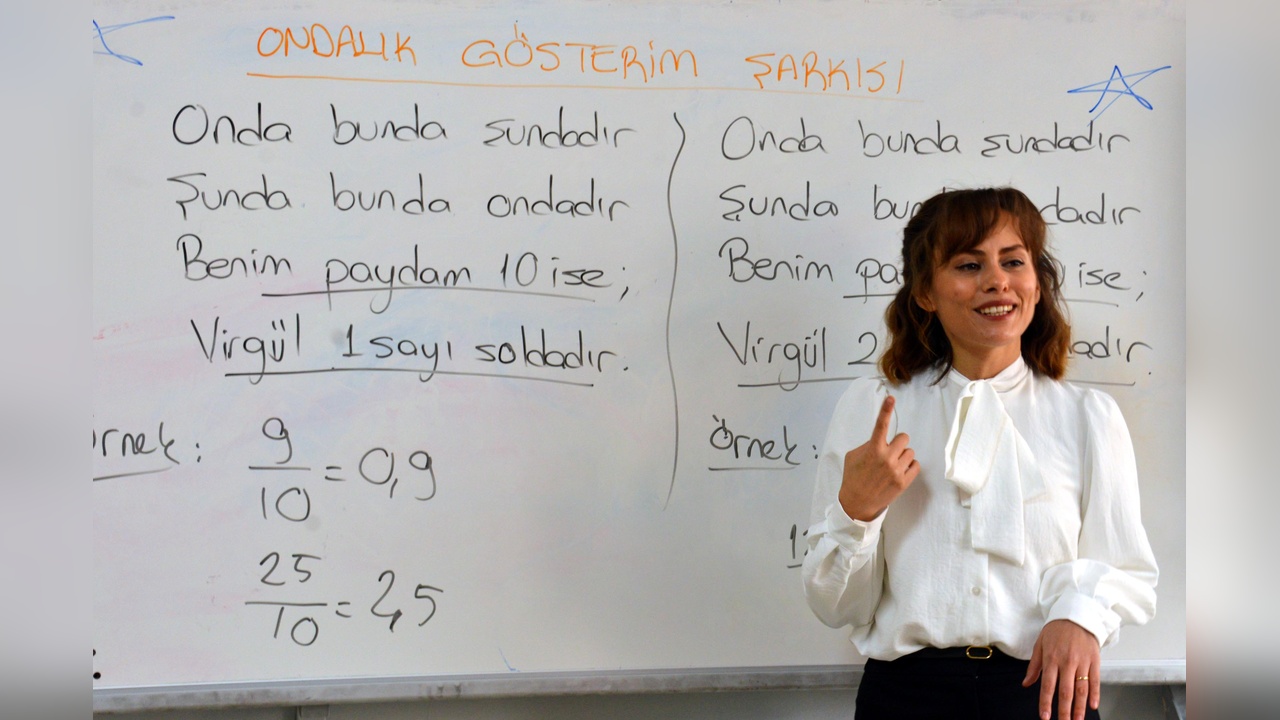 ONDALIK GÖSTERİM ŞARKISI
Onda bunda şundadır
Şunda bunda ondadır
Benim paydam 10 ise;
Virgül 1 sayı soldadır.
9
10
= 0,9
25
10
= 2,5
Onda bunda şundadır
Şunda
Benim ise;
Virgül 2
Örnek: